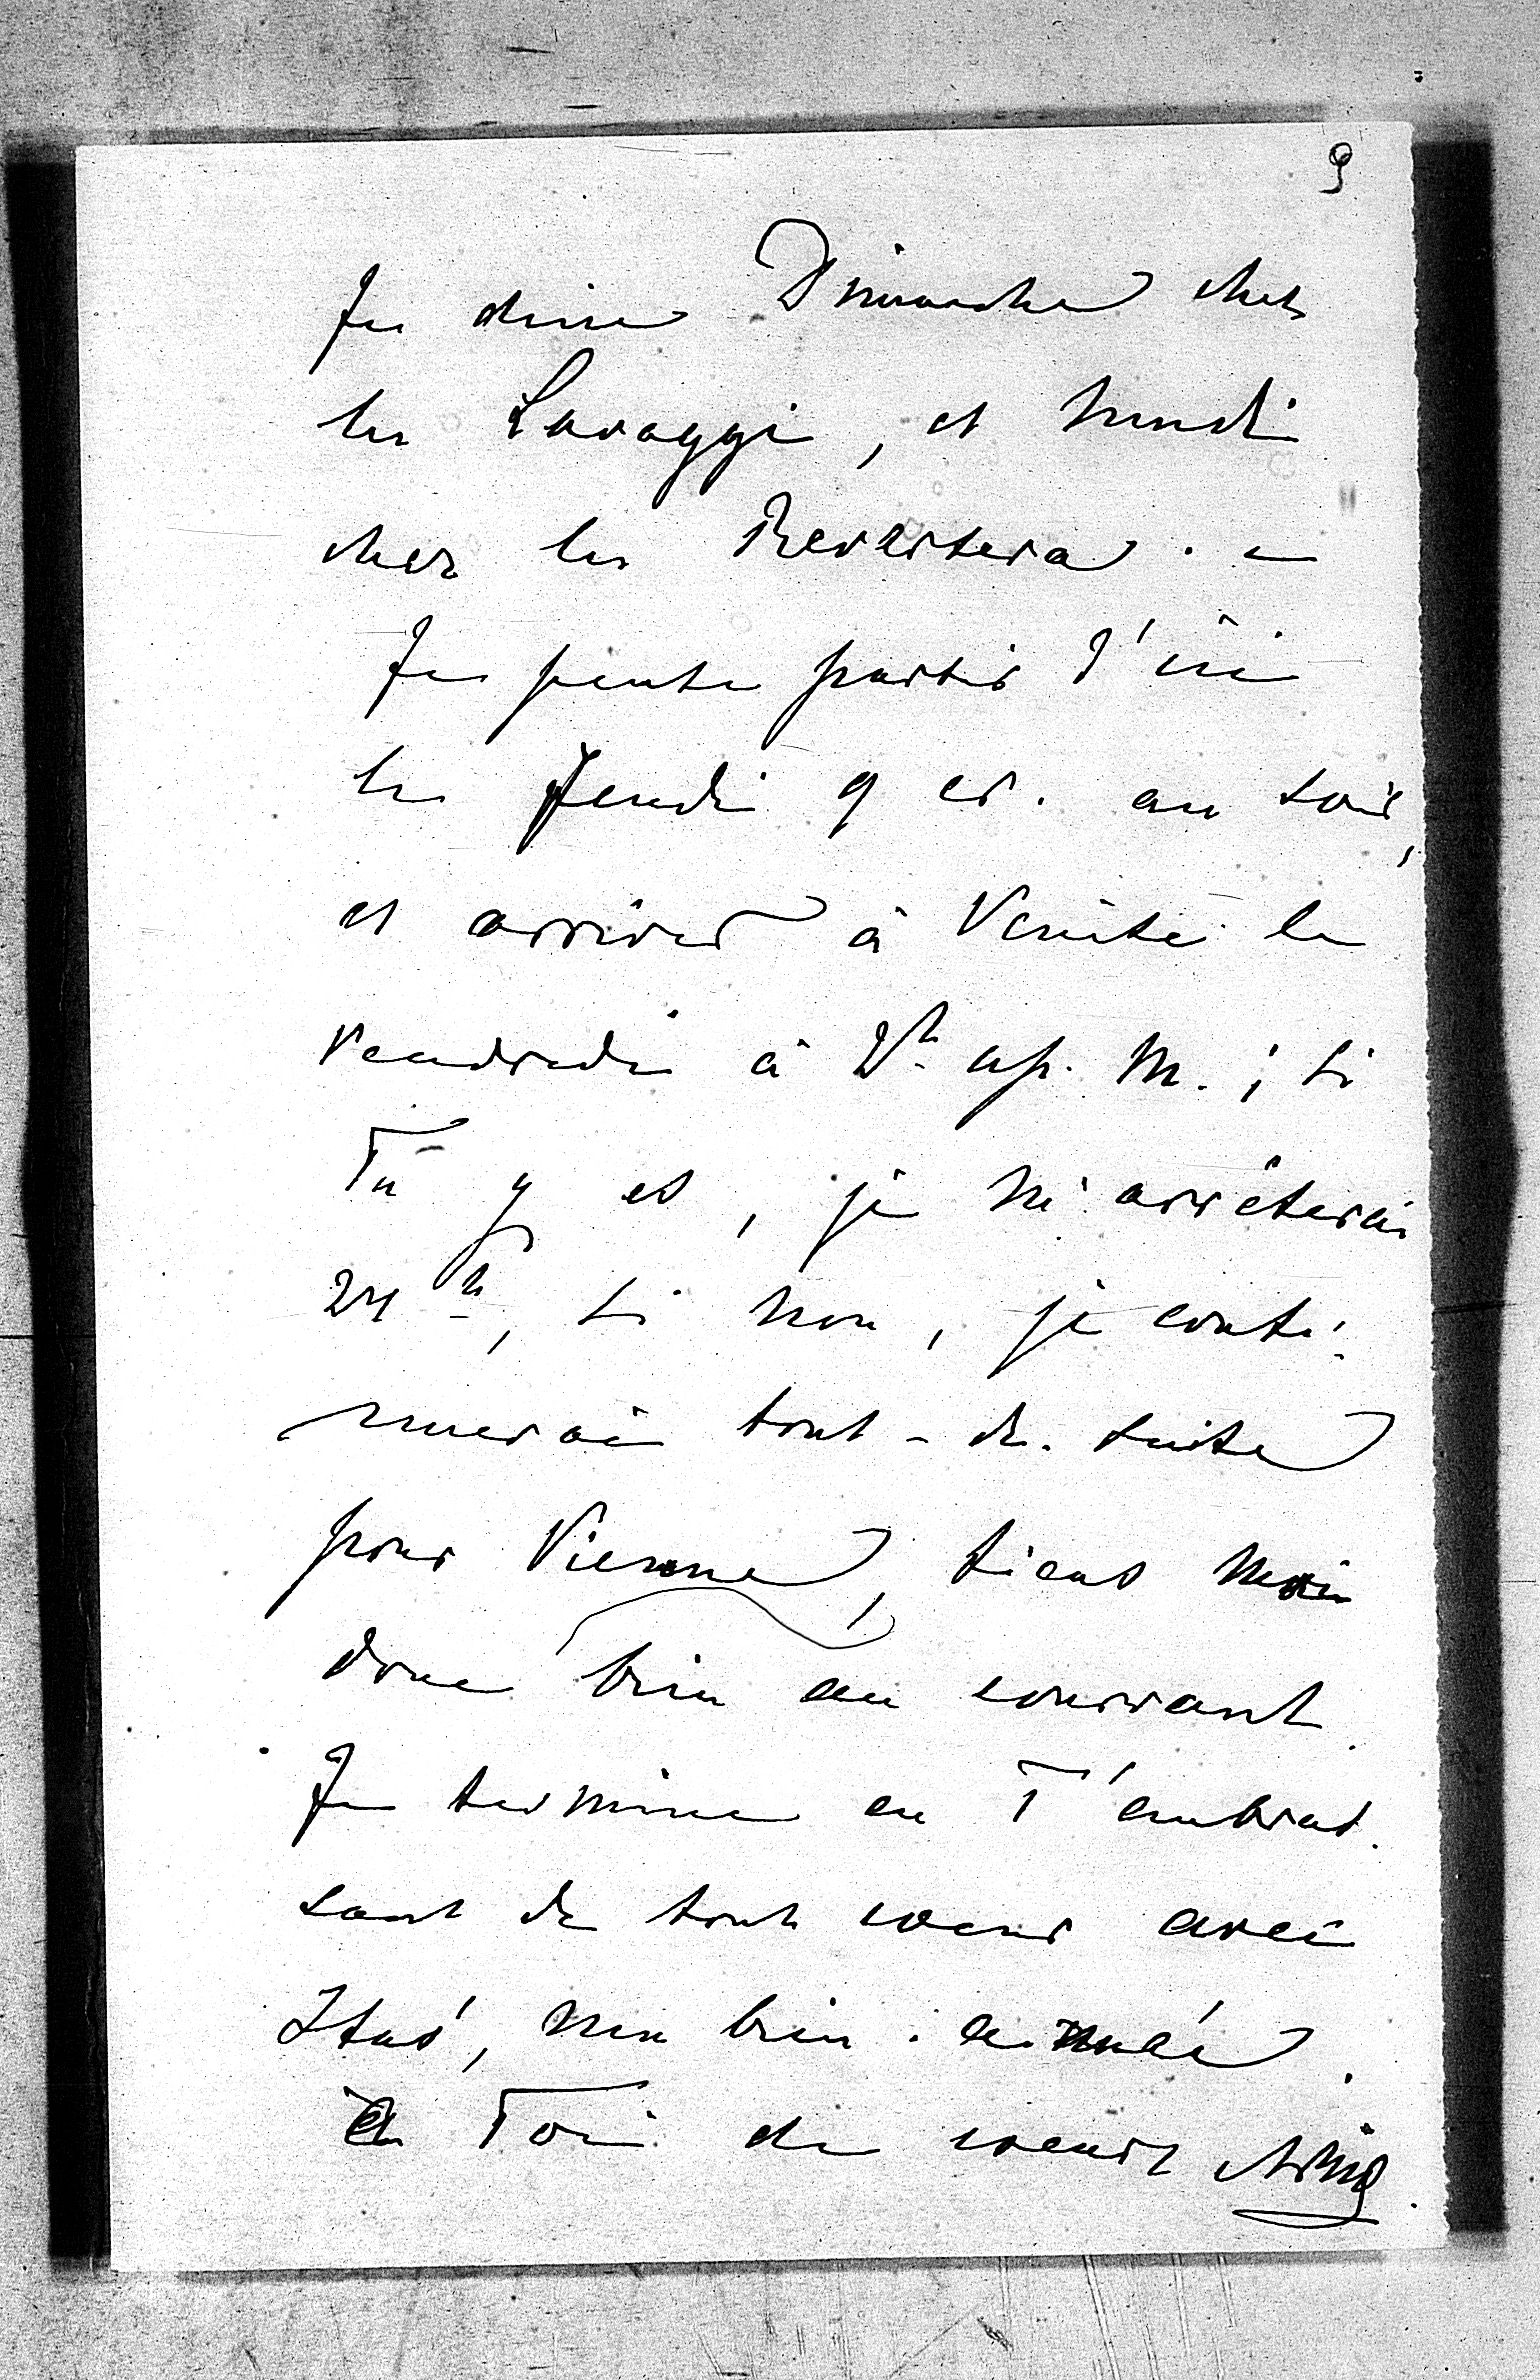 9
Je dine Dimanche chez
les Lovaggi, et lundi
chez les Revertera. –
Je pense partir d'ici
le Jeudi 9 cr. au soir,
et arriver à Venise le
Vendredi à 2h ap. M.; si
Tu y es, je m'arrêterai
24 h, si non, je conti-
nuerai tout-de-suite
pour Vienne, tiens moi
donc bien au courant.
Je termine en T'embras-
sant de tout coeur avec
, ma bien-aimée.
à Toi de coeur